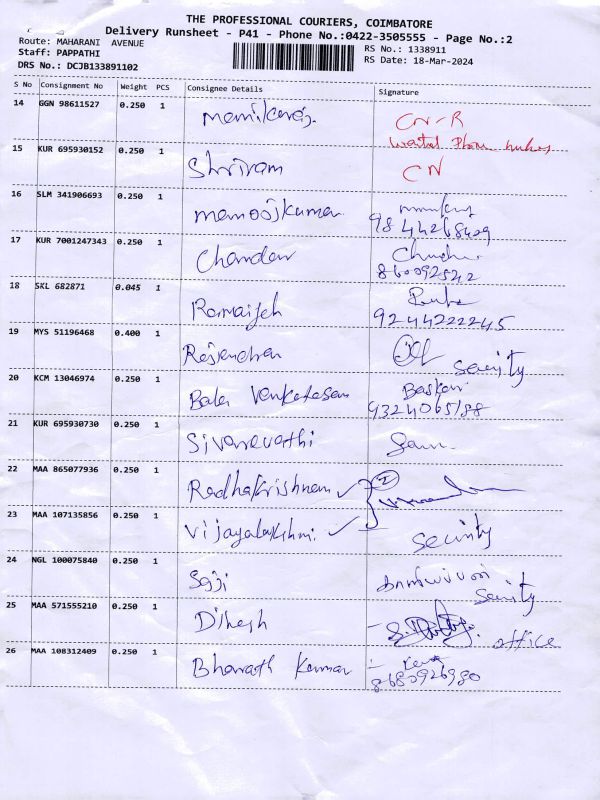 THE PROFESSIONAL COURIERS, COIMBATORE
Delivery Runsheet - P41 - Phone No.:0422-3505555 - Page No.:2
Route: MAHARANI AVENUE
RS No.: 1338911
Staff: PAPPATHI
RS Date: 18-Mar-2024
DRS No.: DCJB133891102
S No Consignment No Weight PCS Consignee Details Signature
14 GGN 98611527 0.250 1 CN-R
15 KUR 695930152 0.250 1 Shriram CN
16 SLM 341906693 0.250 1 manoojkumar
17 KUR 7001247343 0.250 1 Chandan
860092542
18 SKL 682871 0.045 1
9244222245
19 MYS 51196468 0.400 1 Rajendran Security
20 KCM 13046974 0.250 1 Bala Venkatesan Baskar
9324065188
21 KUR 695930730 0.250 1
22 MAA 865077936 0.250 1 Radhakrishnan
23 MAA 107135856 0.250 1 Vijayalakshmi Security
24 NGL 100075840 0.250 1 Saji Security
25 MAA 571555210 0.250 1 Dinesh office
26 MAA 108312409 0.250 1 Bharath Kumar
8680926980